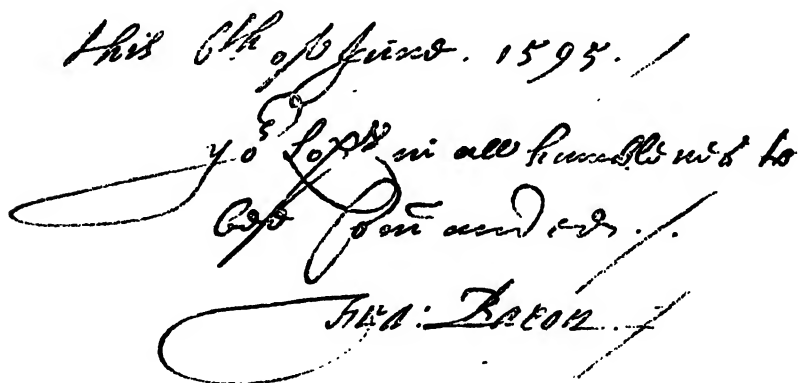 this 6th of June. 1595. /
yor Lops in all humblenes to
be Comanded. /.
Fra: Bacon. /